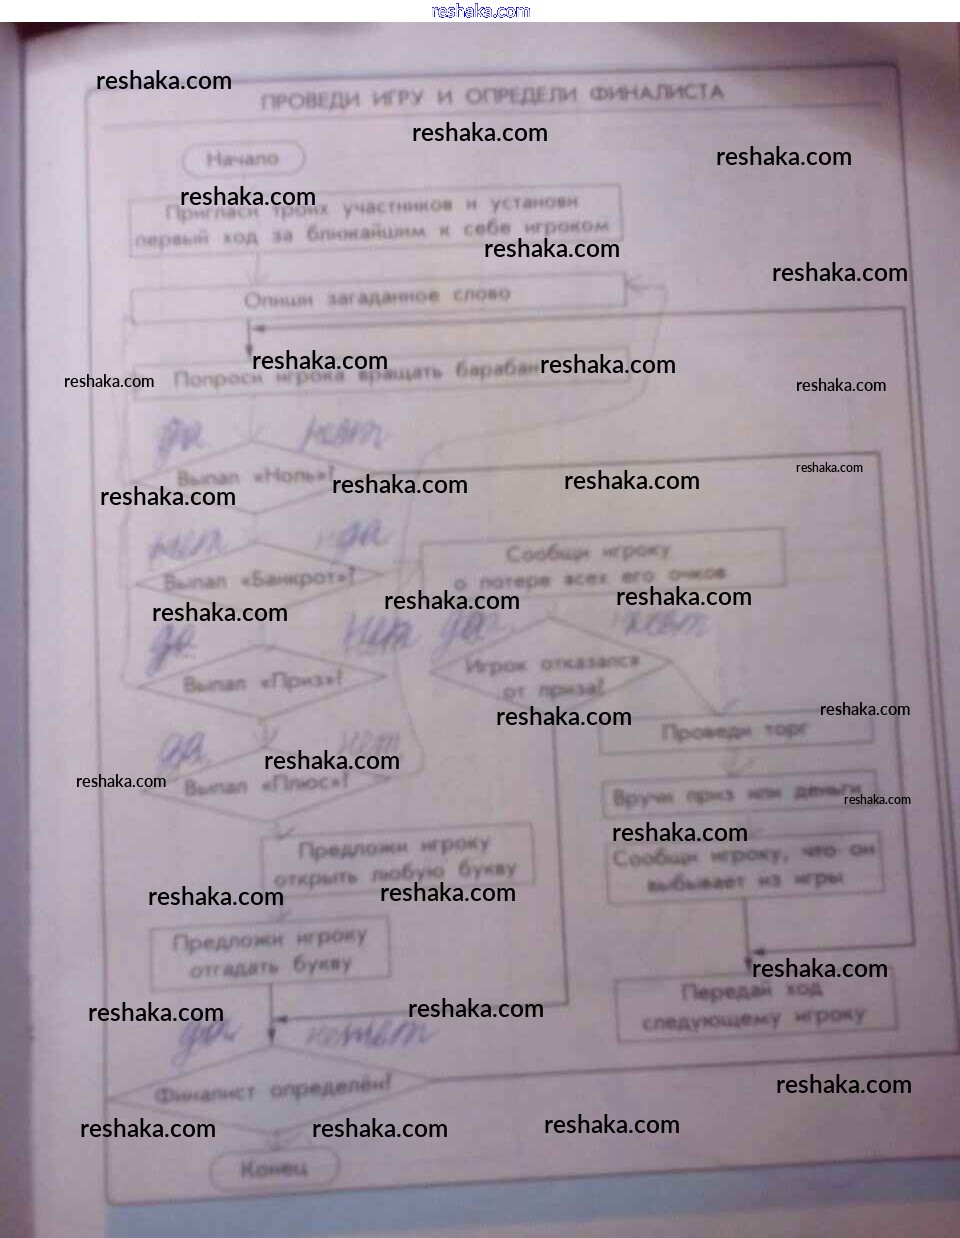 reshaka.com
reshaka.com
ПРОВЕДИ ИГРУ И ОПРЕДЕЛИ ФИНАЛИСТА
reshaka.com
reshaka.com
Начало
reshaka.com
Пригласи троих участников и установи
первый ход за ближайшим к себе игроком
reshaka.com
reshaka.com
Опиши загаданное слово
reshaka.com
reshaka.com
reshaka.com
reshaka.com
Попроси игрока вращать барабан
да нет
reshaka.com
Выпал «Ноль»?
reshaka.com
reshaka.com
reshaka.com
нет да
Сообщи игроку
о потере всех его очков
Выпал «Банкрот»?
reshaka.com
reshaka.com
reshaka.com
да да нет
Игрок отказался
от приза?
Выпал «Приз»?
reshaka.com
reshaka.com
Проведи торг
да нет
reshaka.com
reshaka.com
Выпал «Плюс»?
Вручи приз или деньги
reshaka.com
reshaka.com
Предложи игроку
открыть любую букву
Сообщи игроку, что он
выбывает из игры
reshaka.com
reshaka.com
Предложи игроку
отгадать букву
reshaka.com
Передай ход
следующему игроку
reshaka.com
reshaka.com
да нет
Финалист определён?
reshaka.com
reshaka.com
reshaka.com
reshaka.com
Конец